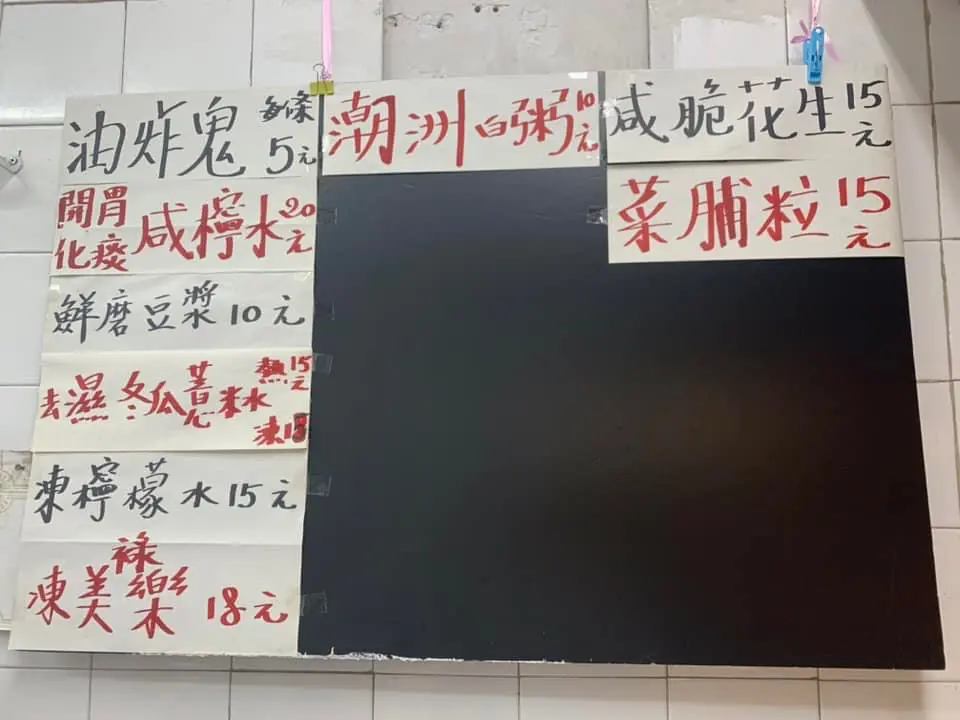 油炸鬼 每條 5元
開胃
化痰 咸檸水 20元
鮮磨豆漿 10元
去濕冬瓜薏米水 熱15元
凍18
凍檸檬水 15元
凍美祿樂 18元
潮洲白粥 10元
咸脆花生 15元
菜脯粒 15元